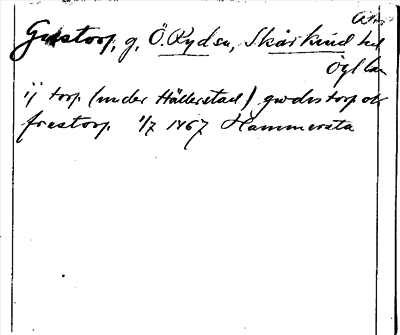 Avs
Gustorp, g, Ö. Ryd sn, Skärkind hd
Ögl län
ij torp (under Hällerstad) gwdistorp ok
frestorp 1/7 1467 Hammersta